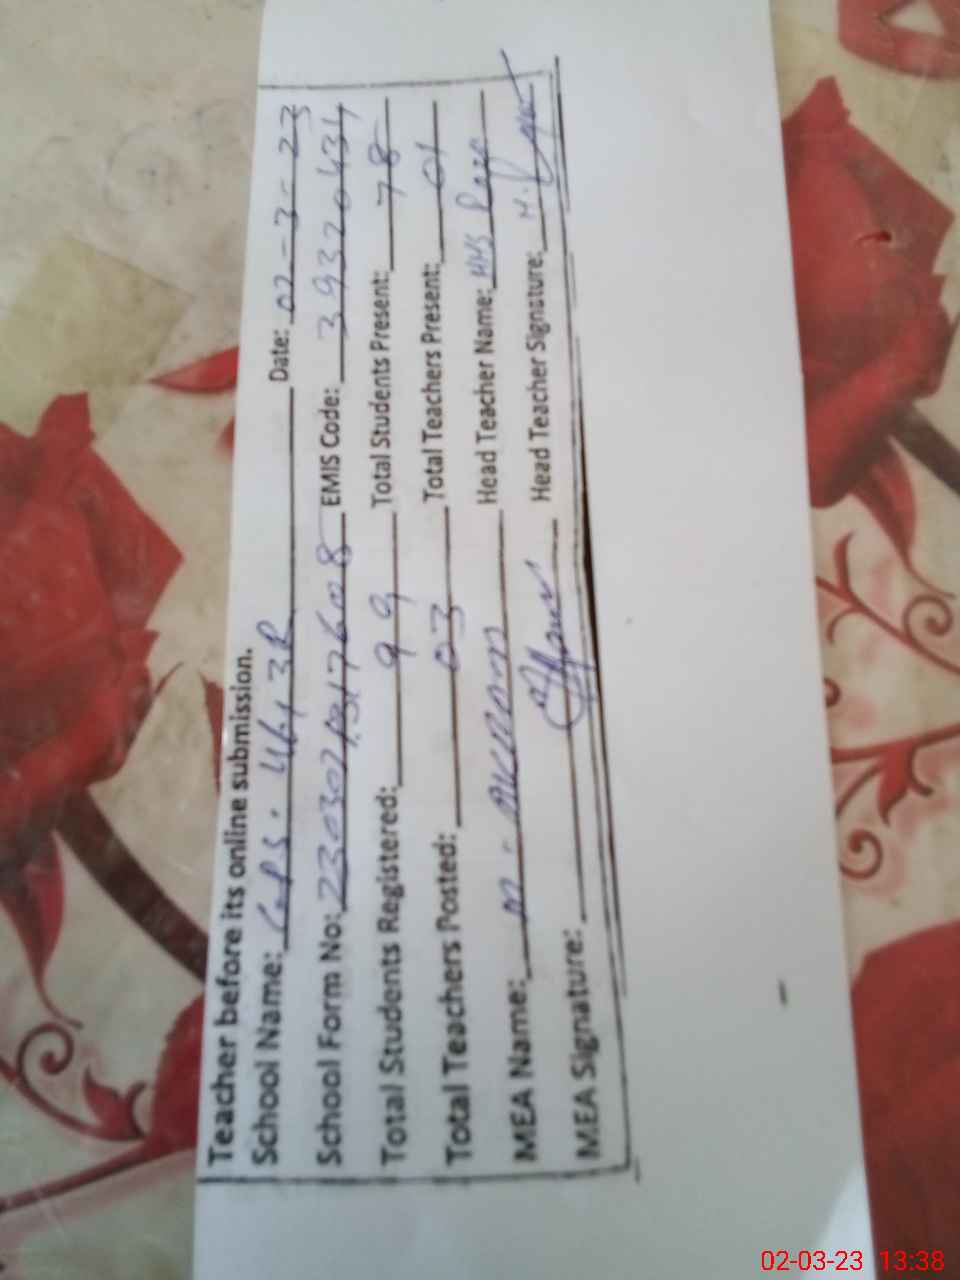 Teacher before its online submission.
School Name: GPS. 46/3R Date: 02-3-23
School Form No: EMIS Code: 39320434
Total Students Registered: 99 Total Students Present: 78
Total Teachers Posted: 03 Total Teachers Present: 01
MEA Name: M-AKRAM Head Teacher Name:
MEA Signature: Head Teacher Signature:
02-03-23 13:38